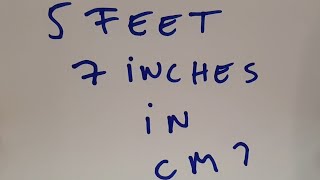 5 FEET
7 iNCHES
iN
CM?